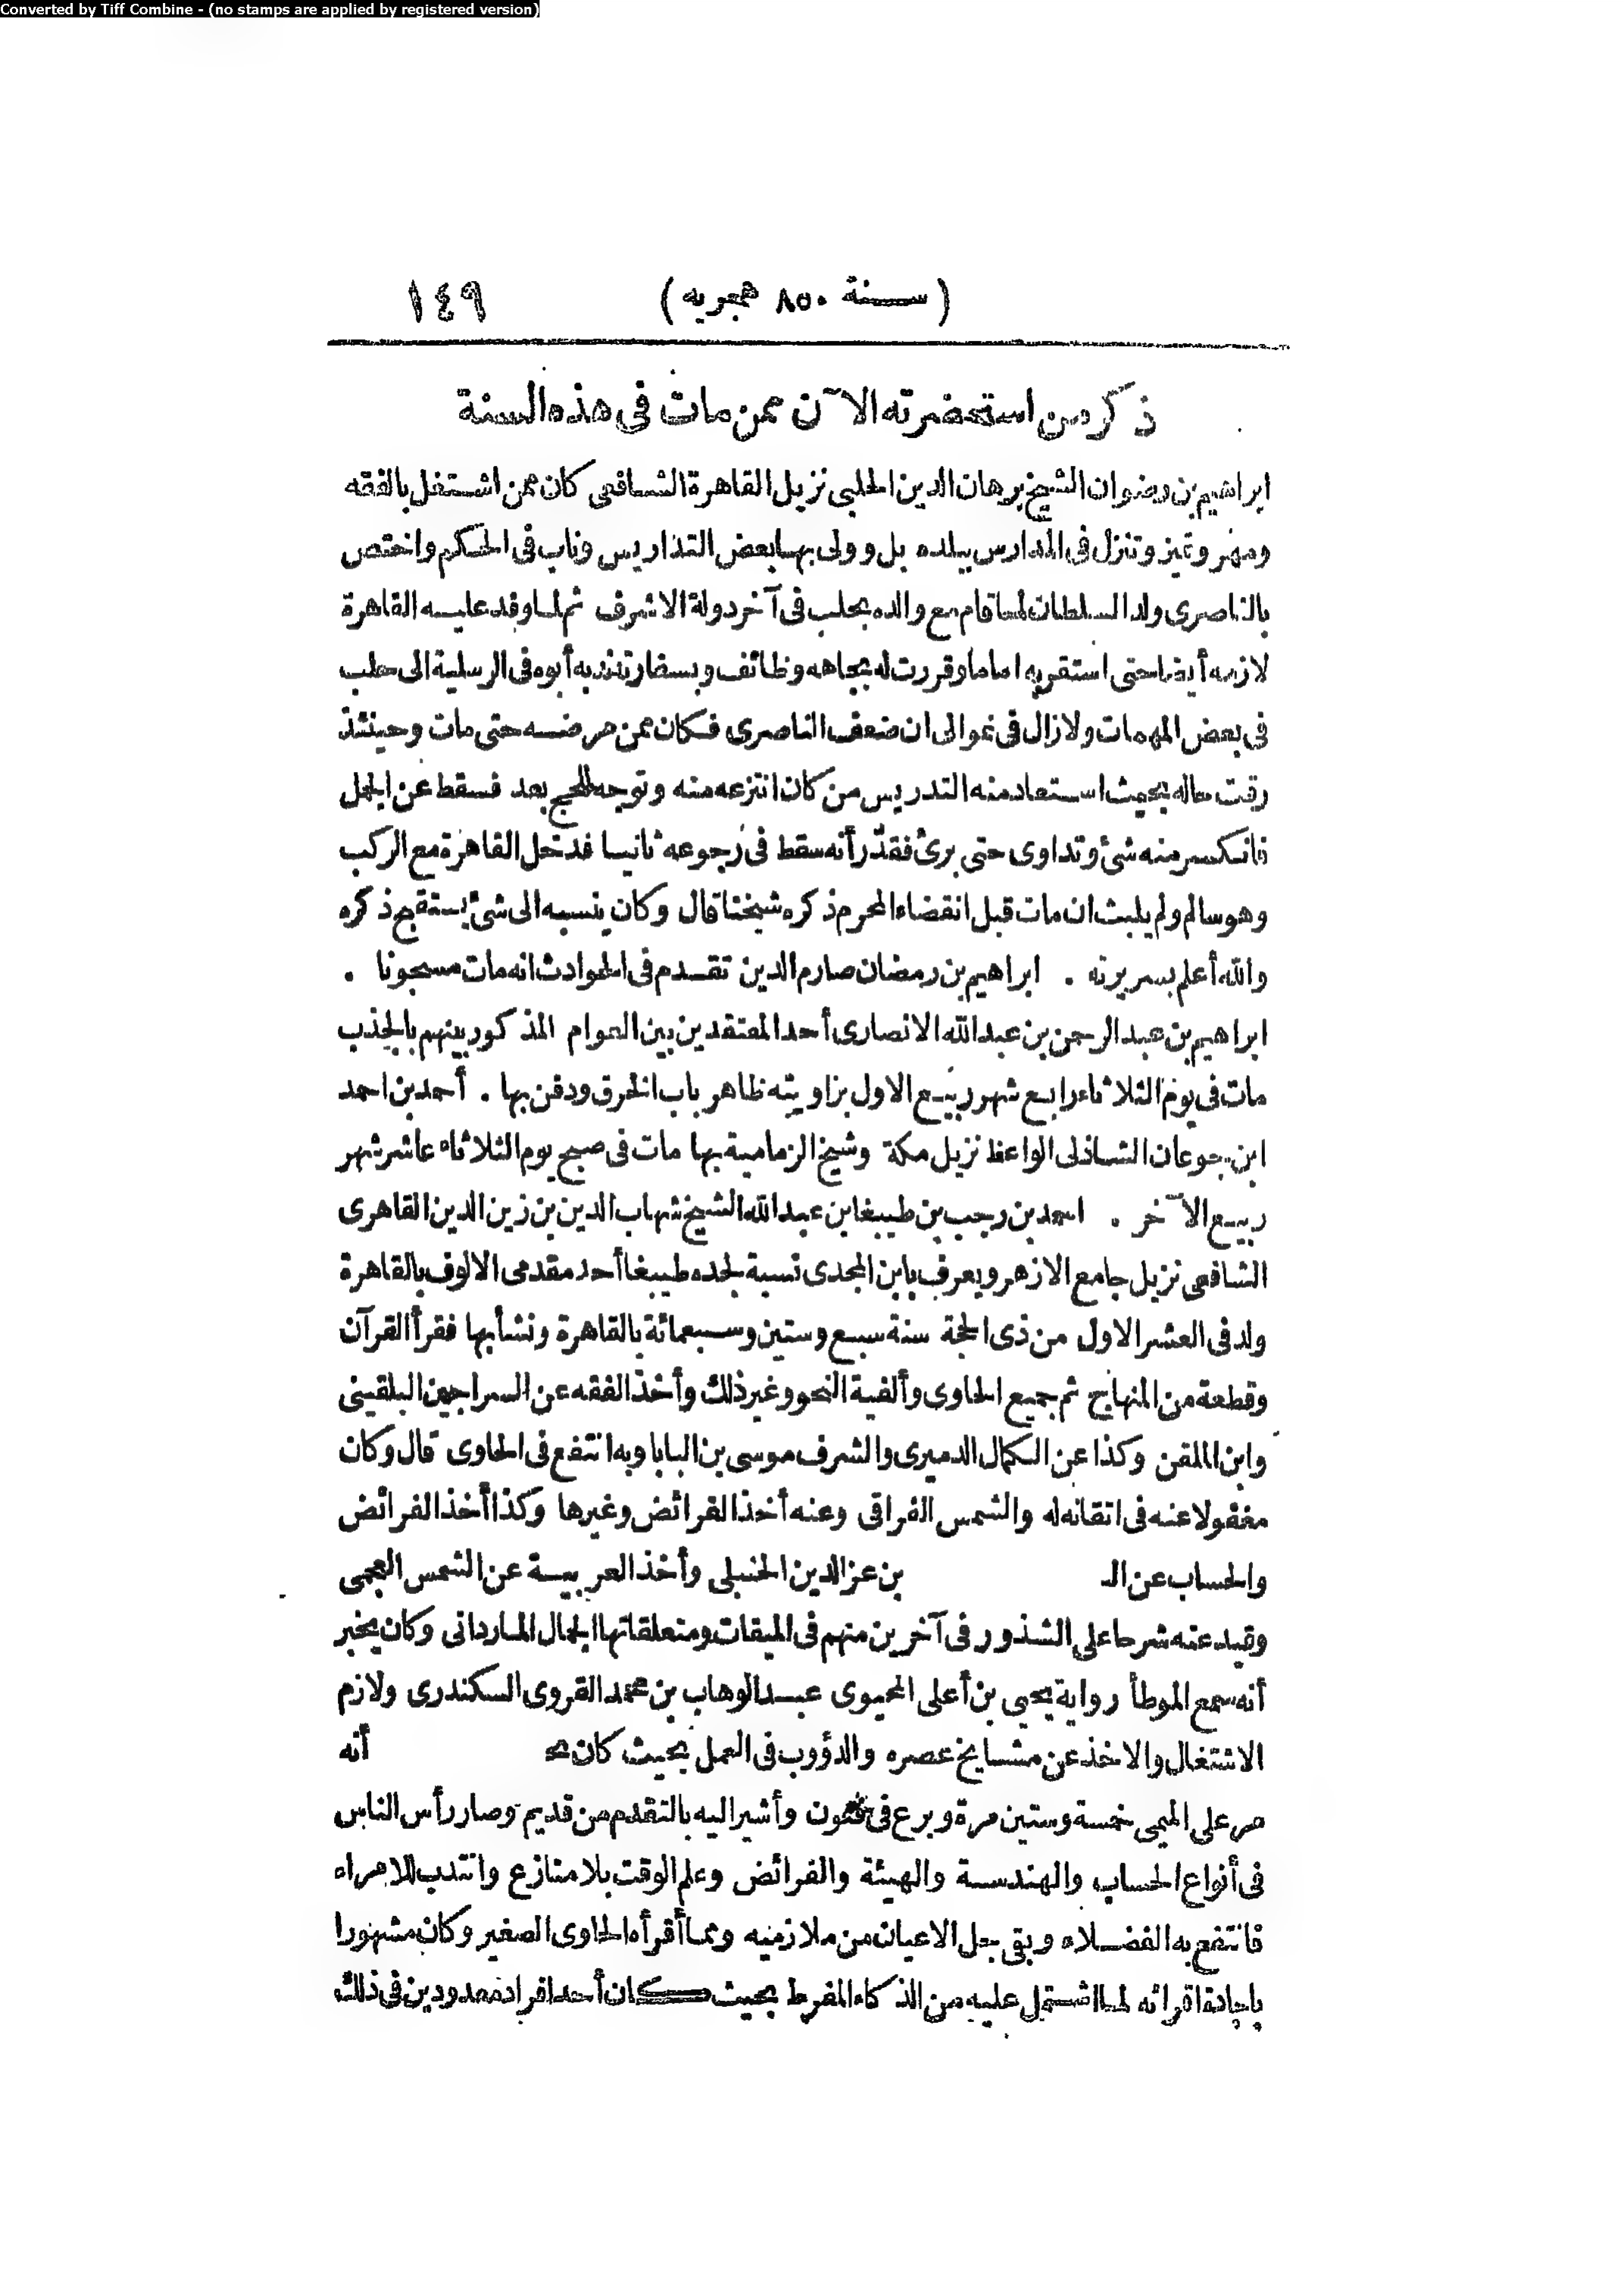 Converted by Tiff Combine - (no stamps are applied by registered version)
(سنة ٨٥٠ هجريه) ١٤٩
ذكر من استحضرته الآن ممن مات فى هذه السنة
ابراهيم بن رضوان الشيخ برهان الدين الحلبى نزيل القاهرة الشافعى كان ممن اشتغل بالفقه
ومهر وتميز وتنزل فى المدارس ببلده بل وولى بها بعض التداريس وناب فى الحكم واختص
بالناصرى ولد السلطان لما قام مع والده بحلب فى آخر دولة الاشرف ثم لما وفد عليه القاهرة
لازمه أيضا حتى استقر به اماما وقررت له بجاهه وظائف وبسفارته ندبه أبوه فى الرسلية الى حلب
فى بعض المهمات ولازال فى نمو الى ان ضعف الناصرى فكان ممن مرضه حتى مات وحينئذ
رقت حاله بحيث استعاد منه التدريس من كان انتزعه منه وتوجه للحج بعد فسقط عن الجمل
فانكسر منه شئ وتداوى حتى برئ فقدّر أنه سقط فى رجوعه ثانيا فدخل القاهرة مع الركب
وهو سالم ولم يلبث ان مات قبل انقضاء المحرم ذكره شيخنا قال وكان ينسبه الى شئ يستقبح ذكره
والله أعلم بسريرته . ابراهيم بن رمضان صارم الدين تقدم فى الحوادث انه مات مسجونا .
ابراهيم بن عبد الرحمن بن عبد الله الانصارى أحد المعتقدين بين العوام المذكور بينهم بالجذب
مات فى يوم الثلاثاء رابع شهر ربيع الاول بزاويته ظاهر باب الخرق ودفن بها . أحمد بن احمد
ابن جوعان الشاذلى الواعظ نزيل مكة وشيخ الزمامية بها مات فى صبح يوم الثلاثاء عاشر شهر
ربيع الآخر . احمد بن رجب بن طيبغا بن عبد الله الشيخ شهاب الدين بن زين الدين القاهرى
الشافعى نزيل جامع الازهر ويعرف بابن المجدى نسبة لجده طيبغا أحد مقدمى الالوف بالقاهرة
ولد فى العشر الاول من ذى الحجة سنة سبع وستين وسبعمائة بالقاهرة ونشأ بها فقرأ القرآن
وقطعة من المنهاج ثم جميع الحاوى وألفية النحو وغير ذلك وأخذ الفقه عن السراجين البلقينى
وابن الملقن وكذا عن الكمال الدميرى والشرف موسى بن البابا وبه انتفع فى الحاوى قال وكان
مغفولا عنه فى اتقانه له والشمس الغراقى وعنه أخذ الفرائض وغيرها وكذا أخذ الفرائض
والحساب عن الـ بن عز الدين الحنبلى وأخذ العربية عن الشمس العجمى
وقيد عنه شرحا على الشذور فى آخرين منهم فى الميقات ومتعلقاتها الجمال الماردانى وكان يخبر
أنه سمع الموطأ رواية يحيى بن أعلى المحيوى عبد الوهاب بن محمد القروى السكندرى ولازم
الاشتغال والاخذ عن مشايخ عصره والدؤوب فى العمل بحيث كان أنه
مر على الميمى خمسة وستين مرة وبرع فى فنون وأشير اليه بالتقدم من قديم وصار رأس الناس
فى أنواع الحساب والهندسة والهيئة والفرائض وعلم الوقت بلا منازع وانتدب للاقراء
فانتفع به الفضلاء وبقى جل الاعيان من ملازميه ومما أقرأه الحاوى الصغير وكان مشهورا
باجادة اقرائه لما اشتمل عليه من الذكاء المفرط بحيث كان أحد افراد معدودين فى ذلك